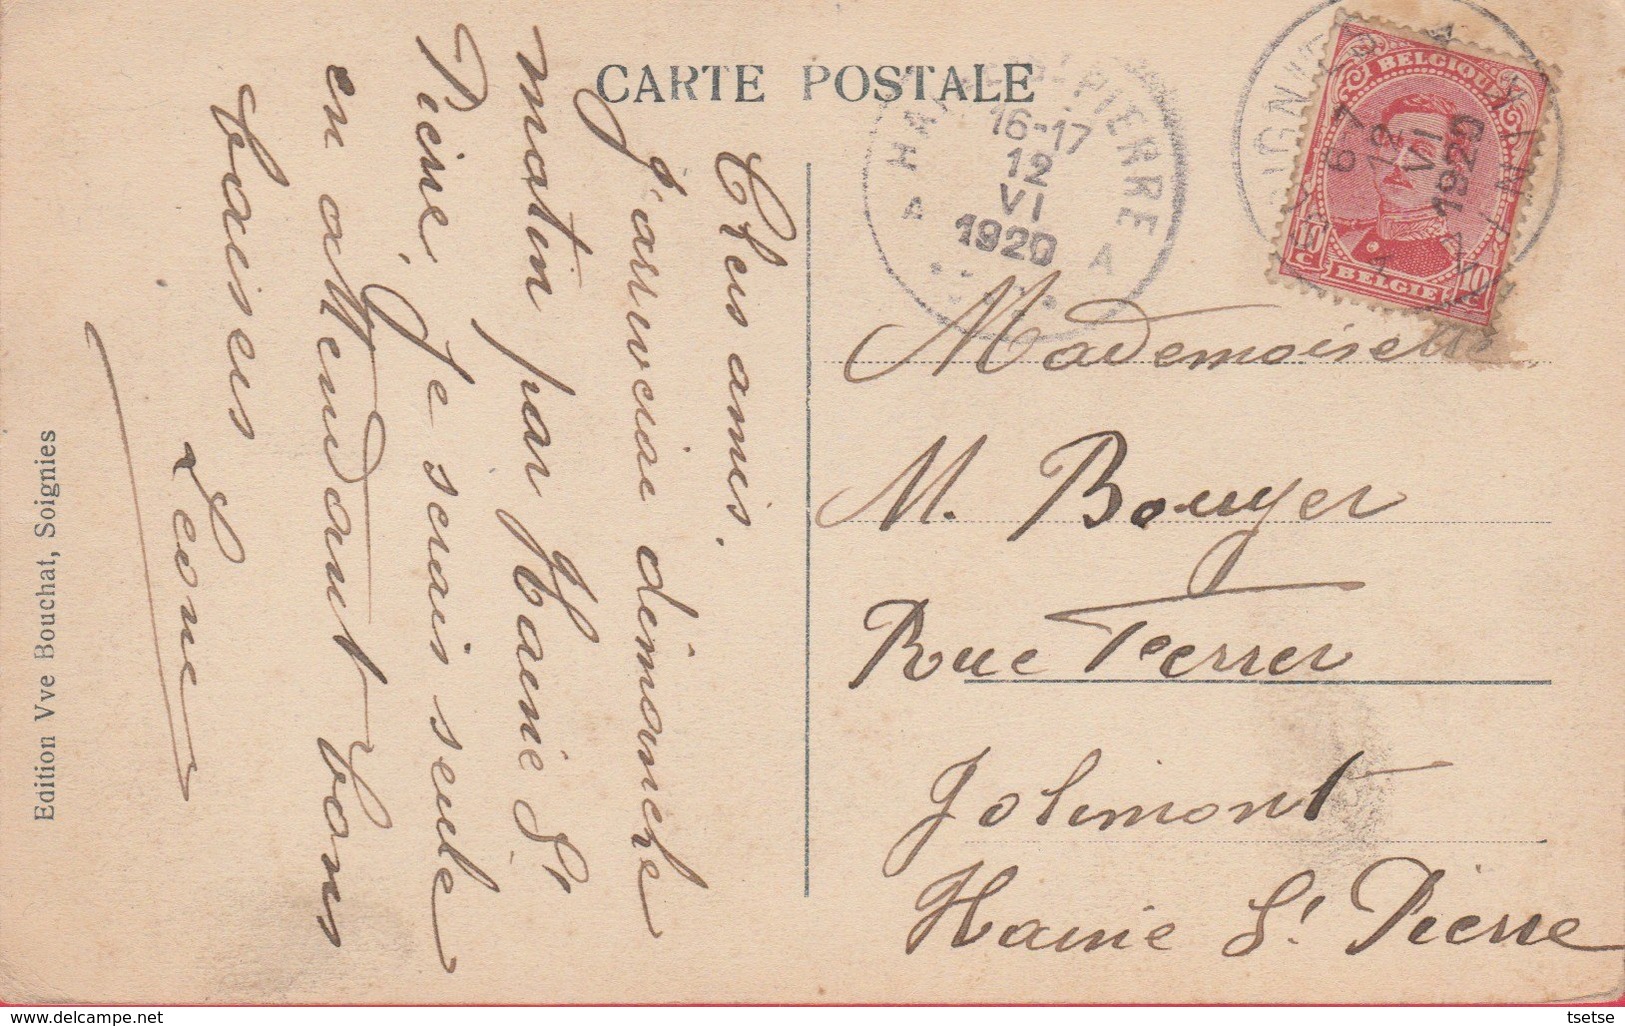 CARTE POSTALE
Chers amis.
J'arriverai dimanche
matin par Haine St
Pierre, Je serais seule
en attendant bons
baisers
Leone
Edition Vve Bouchat, Soignies
HAINE-St-PIERRE
16-17
12
VI
1920
A A
BELGIQUE
BELGIË
10 C
10 C
6-7
12
VI
1920
Mademoiselle
M. Bouyer
Rue Ferrer
Jolimont
Haine St. Pierre
delcampe.net
tsetse